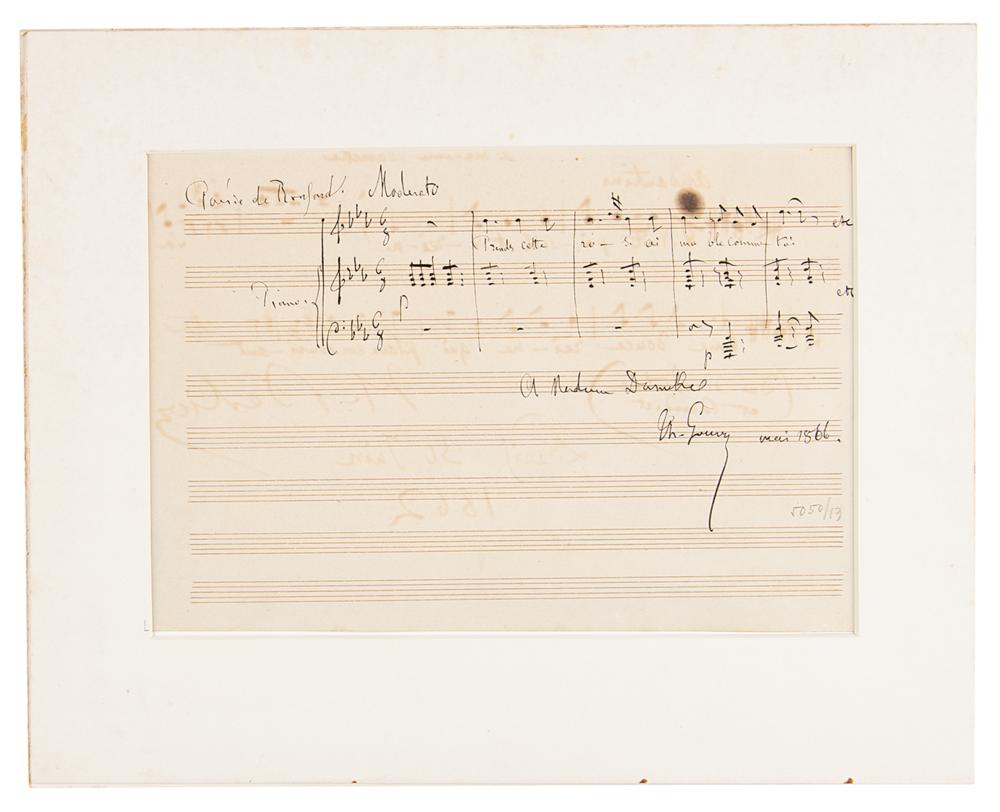 Poésie de Ronsard. Moderato
Prends cette ro - se ai ma ble comme toi
etc
Piano.
etc
p
p
A Madame Damcke
Th. Gouvy mai 1866.
5050/13
1862
L